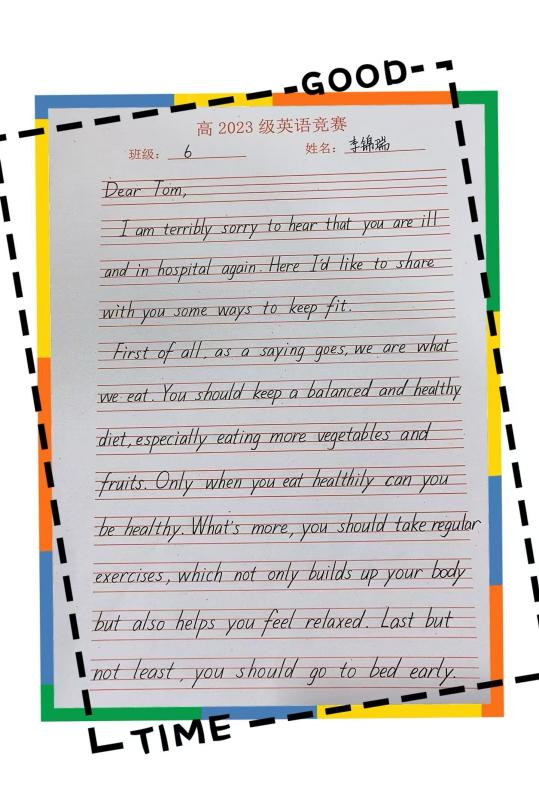 GOOD
高 2023 级英语竞赛
班级： 6 姓名： 李锦瑞
Dear Tom,
I am terribly sorry to hear that you are ill
and in hospital again. Here I'd like to share
with you some ways to keep fit.
First of all, as a saying goes, we are what
we eat. You should keep a balanced and healthy
diet, especially eating more vegetables and
fruits. Only when you eat healthily can you
be healthy. What's more, you should take regular
exercises, which not only builds up your body
but also helps you feel relaxed. Last but
not least, you should go to bed early.
TIME